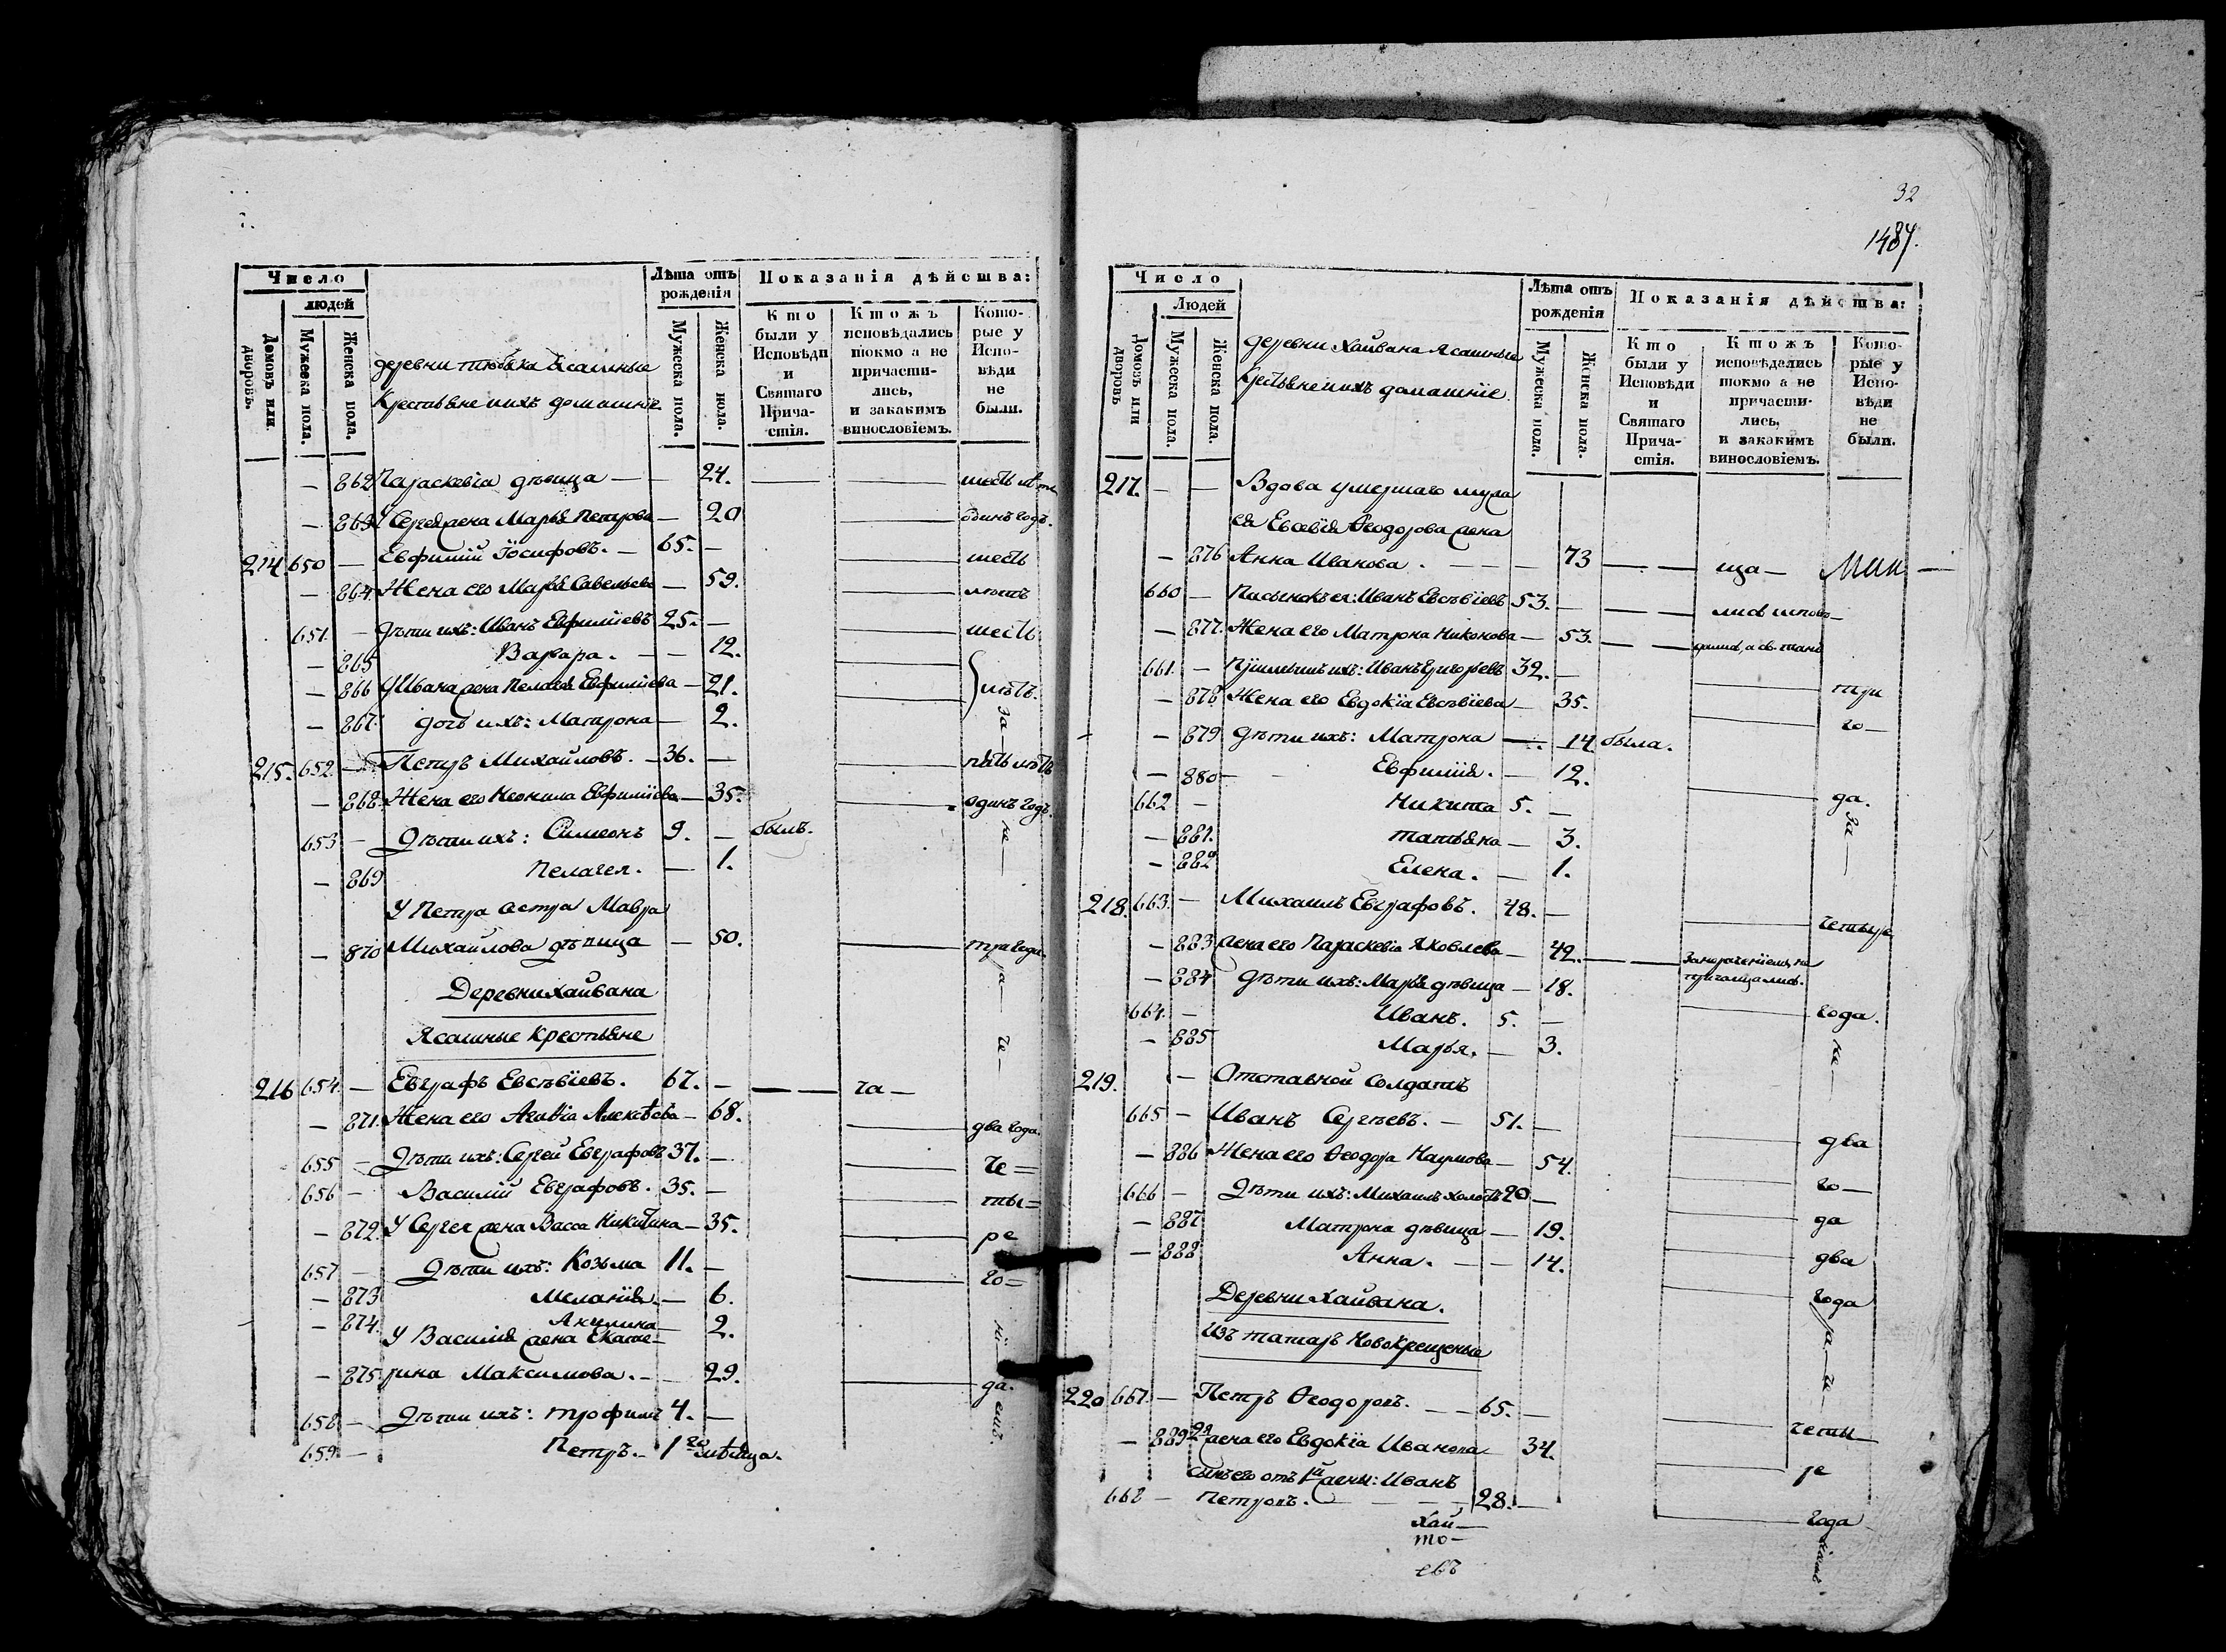 Число
людей
Домовъ или дворовъ.
Мужеска пола.
Женска пола.
деревни тювака Ясашные
Крестьяне ихъ домашніе
Лѣта отъ рожденія
Мужеска пола.
Женска пола.
Показанія дѣйства:
Кто были у Исповѣди и Святаго Причастія.
Ктожъ исповѣдались токмо а не причастились, и закакимъ винословіемъ.
Которые у Исповѣди не были.
— 862 Параскевія дѣвица — — 24. шесть лѣтъ
— 863 У Сергея жена Марья Петрова — 20 одинъ годъ.
214. 650 — Евфимій Іосифовъ. — 65. — шесть
— 864. Жена его Марья Савельева — 59. лѣтъ
651. — Дѣти ихъ: Иванъ Евфиміевъ 25. — шесть
— 865 Варвара. — — 12.
— 866 У Ивана жена Пелагея Евфиміева — 21. лѣтъ.
— 867. дочь ихъ: Матрона — 2. за —
215. 652. — Петръ Михайловъ. — 36. — пять лѣтъ
— 868. Жена его Неонила Евфиміева — 35. одинъ годъ.
653 — Дѣти ихъ: Симеонъ 9. — былъ. не —
— 869 Пелагея. — 1.
У Петра сестра Мавра
— 870 Михайлова дѣвица — 50. три года.
ра —
Деревни хайвана
Ясашные крестьяне
че —
216 654. — Евграфъ Евсѣвіевъ. 67. — — — ча —
— 871. Жена его Агафіа Алексѣева — 68. два года.
655 — Дѣти ихъ: Сергей Евграфовъ 37. — че =
656 — Василій Евграфовъ. 35. — ты =
— 872. У Сергея жена Васса Никитина — 35. ре
657 — Дѣти ихъ: Козьма 11. — го =
— 873 Меланія. — 6.
— 874. Акулина — 2.
У Василія жена Екате-
— 875. рина Максимова. — 29. да.
ні —
658 — Дѣти ихъ: трофимъ 4. —
емъ.
659. — Петръ. — 1го мѣсяца.
32
1487.
Число
Людей
Домовъ или дворовъ
Мужеска пола.
Женска пола.
деревни Хайвана Ясашные
Крестьяне ихъ домашніе.
Лѣта отъ рожденія
Мужеска пола.
Женска пола.
Показанія дѣйства:
Кто были у Исповѣди и Святаго Причастія.
Ктожъ исповѣдались токмо а не причастились, и закакимъ винословіемъ.
Которые у Исповѣди не были.
217. — — Вдова умершаго мужа
ея Евсевія Ѳеодорова жена
— 876 Анна Иванова. — — — 73 — — ща —
660 — Пасынокъ ея: Иванъ Евсѣвіевъ 53. — — — лись
— 877. Жена его Матрона Никонова — 53. — —
661. — Пріимышъ ихъ: Иванъ Григорьевъ 32. — три
— 878 Жена его Евдокіа Евсѣвіева — 35. го —
— 879 Дѣти ихъ: Матрона — 14. была.
— 880 — Евфимія. — 12.
662 — Никита 5. — да.
— 881. татьяна — 3. за —
— 882 Елена. — 1.
218. 663. — Михаилъ Евграфовъ. 48. — четыре
— 883 жена его Параскевіа Яковлева — 42. — — Занераченіемъ не
— 884 дѣти ихъ: Марья дѣвица — 18. причащались.
664. — Иванъ. 5. — года.
— 885 Марья. — 3. не —
219. — Отставной Солдатъ
665 — Иванъ Сергѣевъ. — 51. — два
— 886 Жена его Ѳеодора Наумова — 54. го —
666 — Дѣти ихъ: Михаилъ холостъ 20 — да
— 887 Матрона дѣвица — 19. два
— 888 Анна. — — 14. года
Деревни Хайвана.
ра —
Изъ татаръ Новокрещеные
че —
220 667. — Петръ Ѳеодоровъ. — — 65. — четы —
— 889 2я жена его Евдокіа Иванова 34. ре
сынъ его отъ 1й жены: Иванъ
668 — Петровъ. — — — — 28. — года
ніемъ.
Хай —
то —
евъ